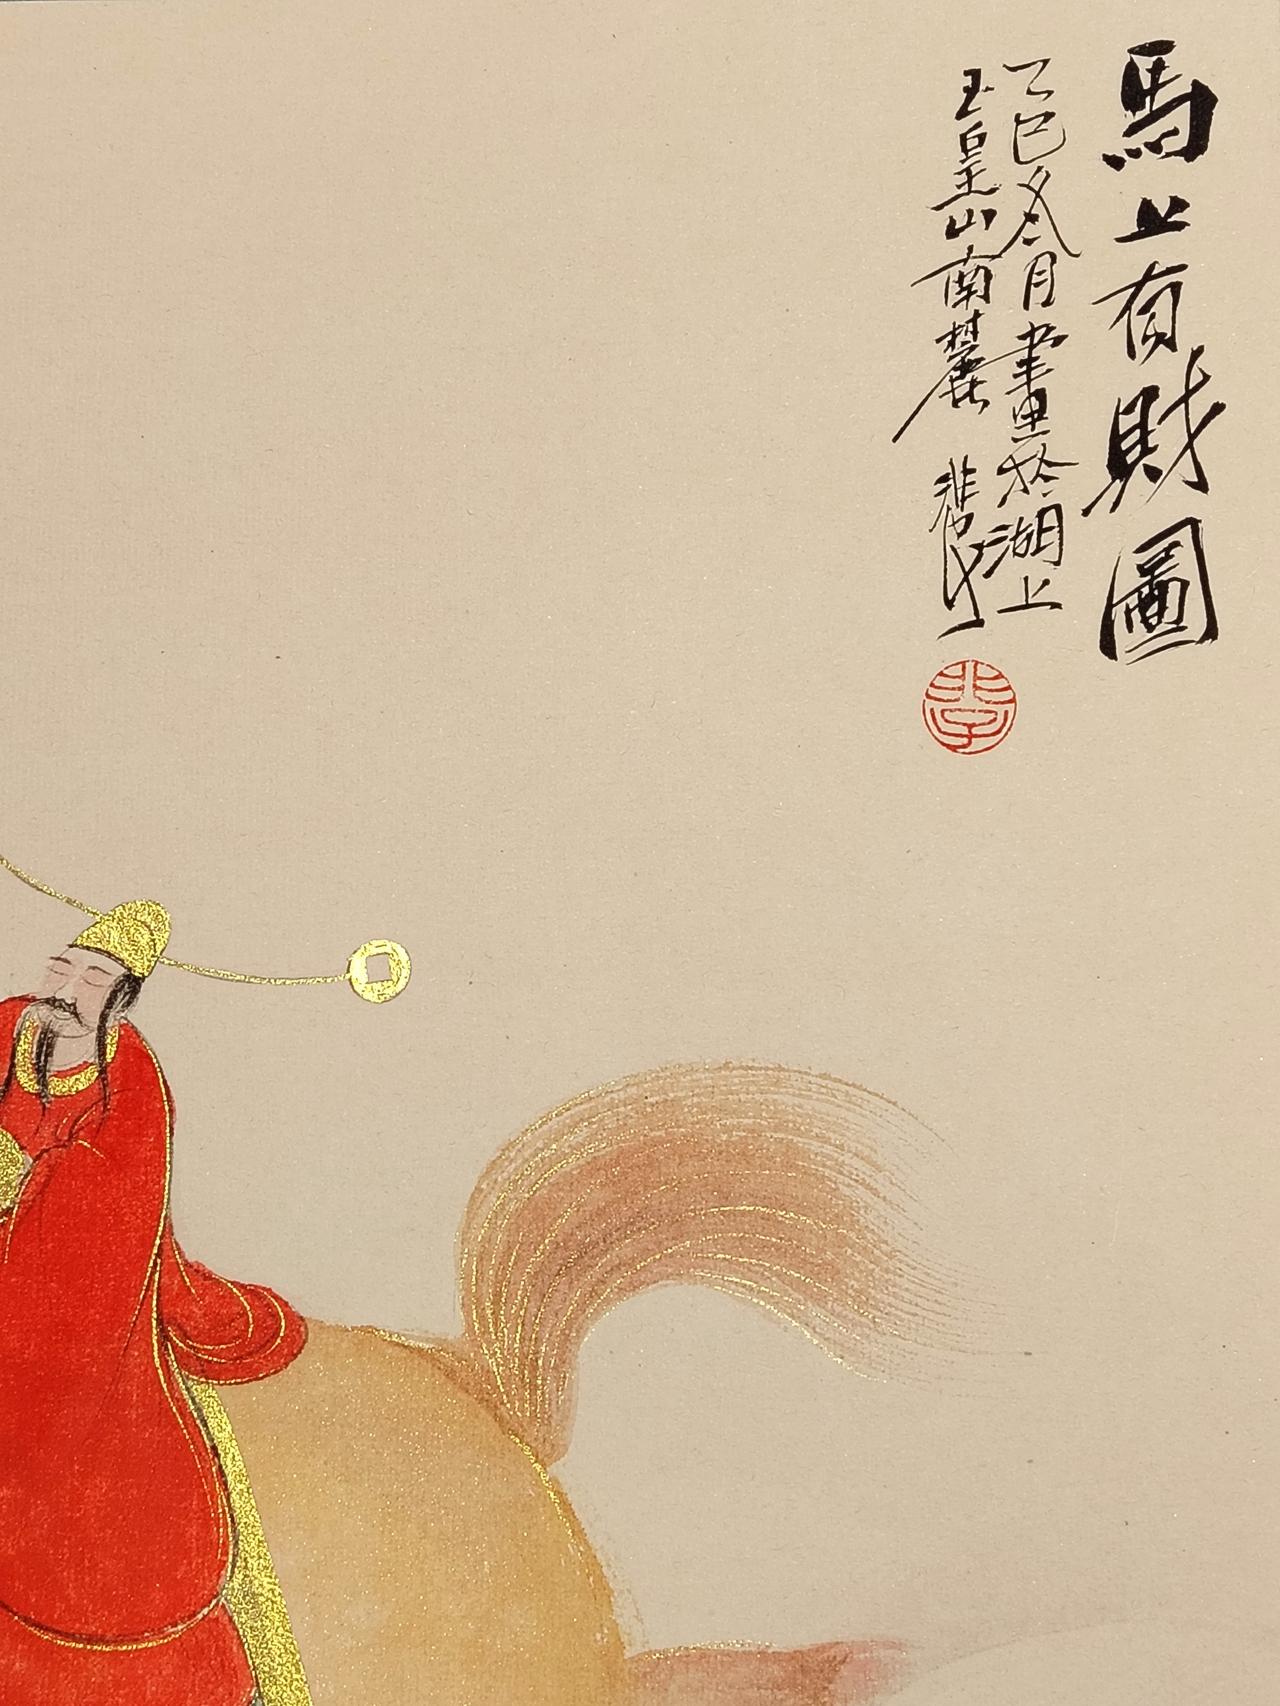 馬上有財圖
乙巳冬月畫於湖上
玉皇山南麓